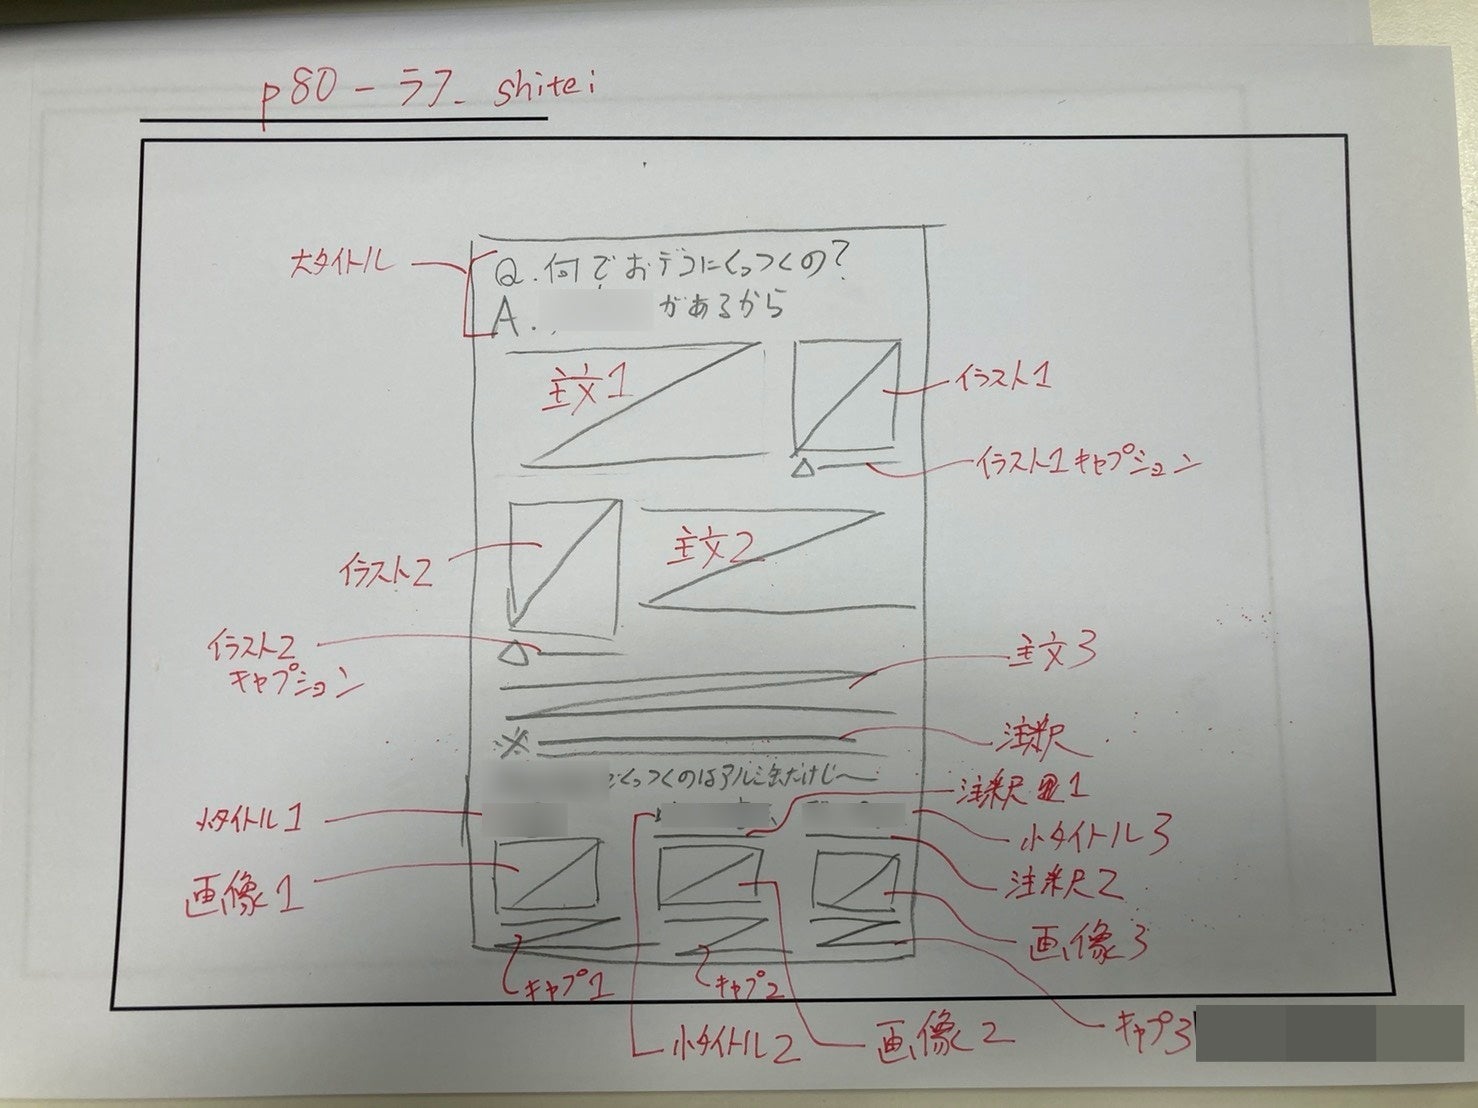 p80-ラフ_shitei
大タイトル
Q.何でおデコにくっつくの?
A.
があるから
主文1
イラスト1
イラスト1キャプション
イラスト2
主文2
イラスト2
キャプション
主文3
※
注釈
くっつくのはアルミ缶だけじ〜
注釈1
小タイトル1
小タイトル3
画像1
注釈2
画像3
キャプ1
キャプ2
小タイトル2
画像2
キャプ3